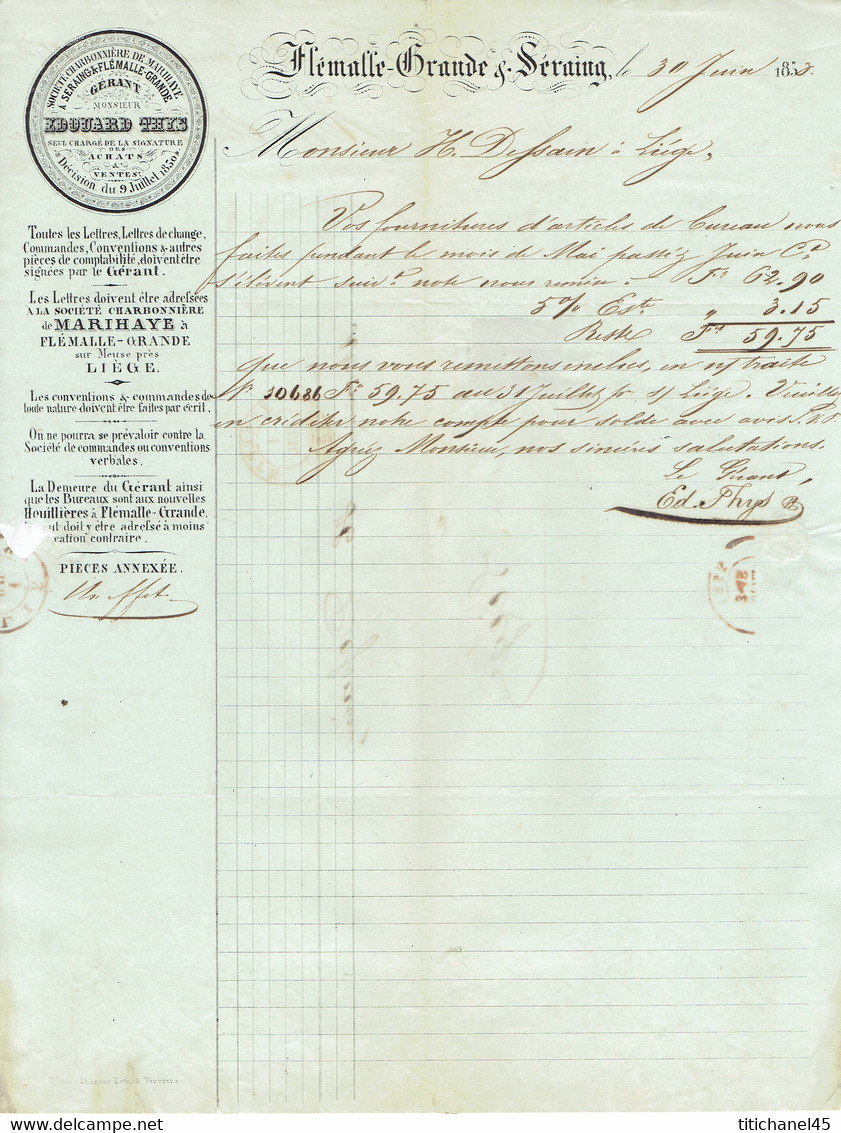 SOCIÉTÉ CHARBONNIÈRE DE MARIHAYE
A SERAING & FLÉMALLE-GRANDE
GÉRANT
MONSIEUR
EDOUARD THYS
SEUL CHARGÉ DE LA SIGNATURE
DES
ACHATS
&
VENTES.
Décision du 9 Juillet 1850
Flémalle-Grande & Séraing, le 30 Juin 1853.
Monsieur H. Dessain à Liége,
Vos fournitures d'articles de bureau nous
faites pendant le mois de Mai passé & Juin Ct
s'élèvent suivt note nous remise à Frs 62.90
5% Este " 3.15
Reste Frs 59.75
que nous vous remettons inclus, en n/ traite
No 10686 Frs 59.75 au 31 Juillet pr s/ Liége. Veuillez
en créditer notre compte pour solde avec avis.
Agréez Monsieur, nos sincères salutations.
Le Gérant,
Ed. Thys
Toutes les Lettres, Lettres de change,
Commandes, Conventions & autres
pièces de comptabilité, doivent être
signées par le Gérant.
Les Lettres doivent être adressées
A LA SOCIÉTÉ CHARBONNIÈRE
de MARIHAYE à
FLÉMALLE-GRANDE
sur Meuse près
LIÈGE.
Les conventions & commandes de
toute nature doivent être faites par écrit.
On ne pourra se prévaloir contre la
Société de commandes ou conventions
verbales.
La Demeure du Gérant ainsi
que les Bureaux sont aux nouvelles
Houillières à Flémalle-Grande.
doit y être adressé à moins
cation contraire.
PIÈCES ANNEXÉE.
Un effet
titichanel45